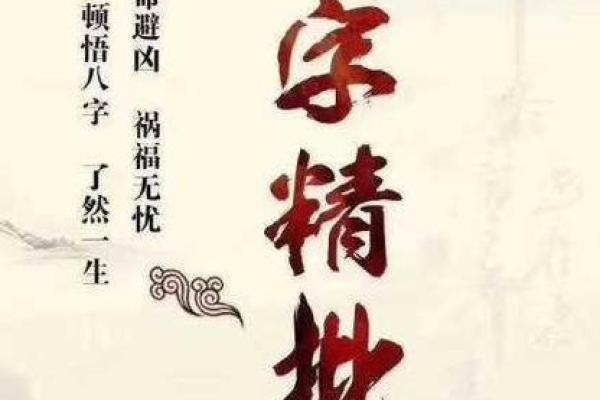 字精批
命避凶 祸福无忧
顿悟八字 了然一生